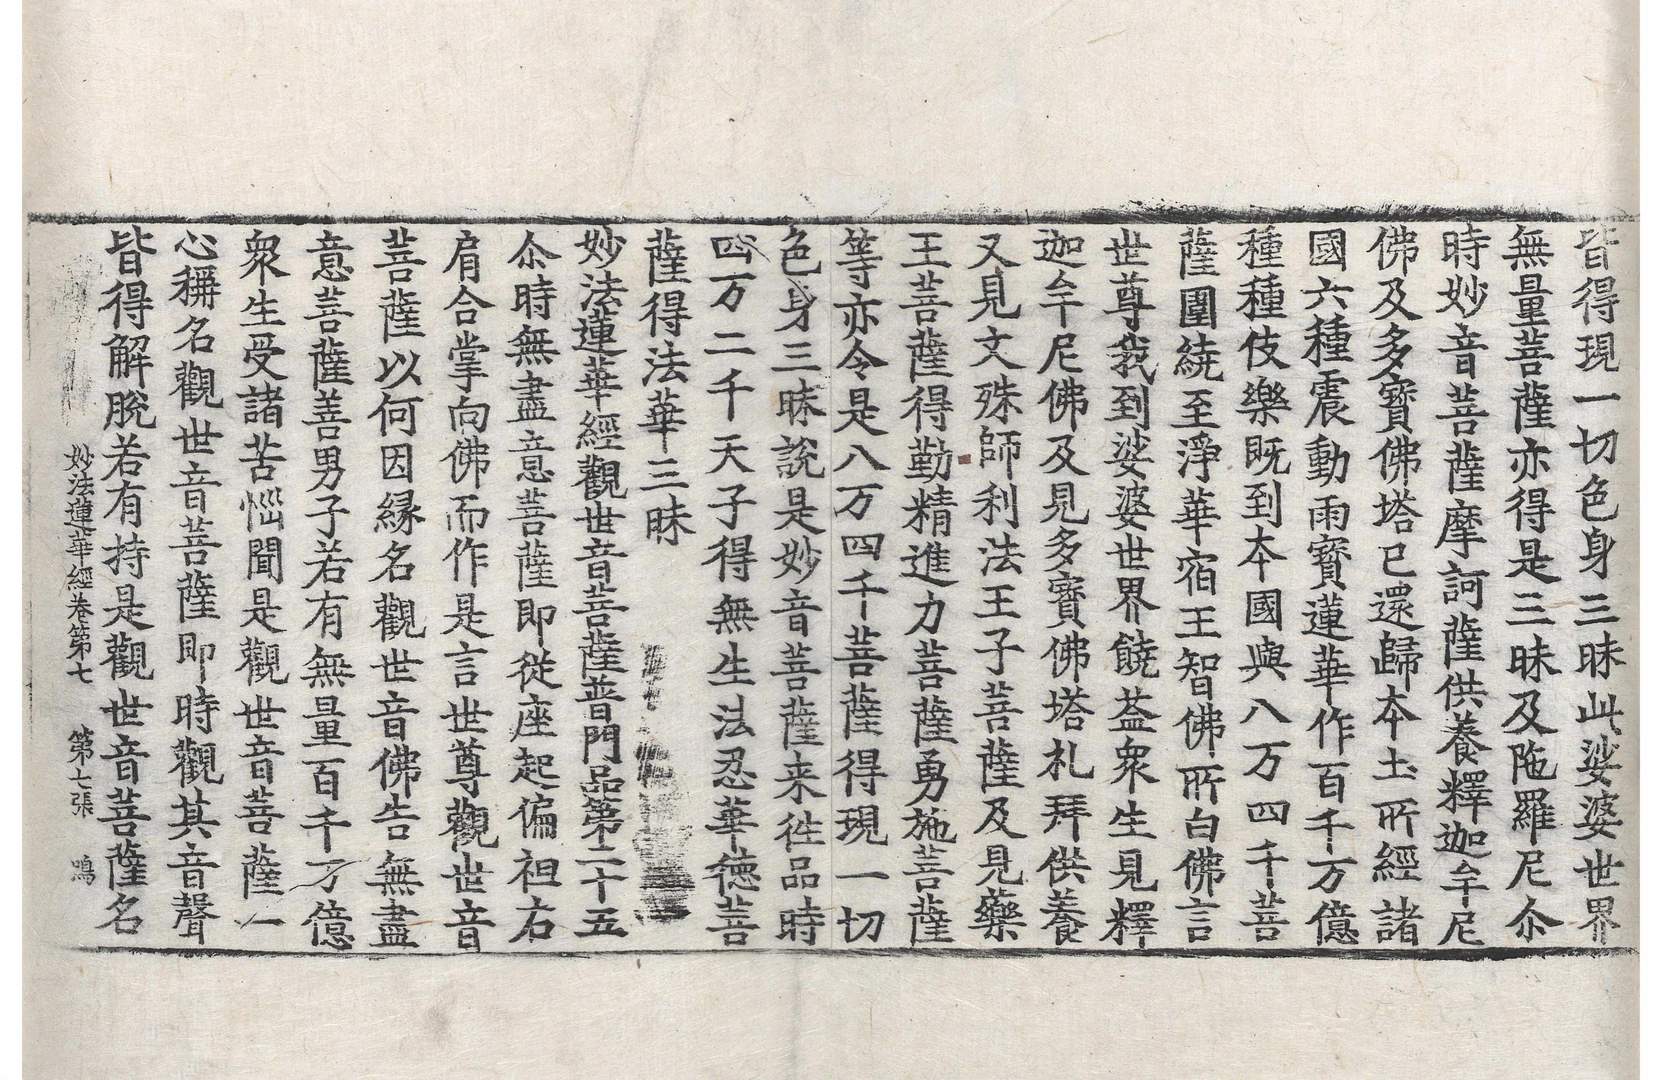 皆得現一切色身三昧此娑婆世界
無量菩薩亦得是三昧及陁羅尼尒
時妙音菩薩摩訶薩供養釋迦牟尼
佛及多寶佛塔已還歸本土所經諸
國六種震動雨寶蓮華作百千万億
種種伎樂旣到本國與八万四千菩
薩圍繞至淨華宿王智佛所白佛言
世尊我到娑婆世界饒益衆生見釋
迦牟尼佛及見多寶佛塔礼拜供養
又見文殊師利法王子菩薩及見藥
王菩薩得勤精進力菩薩勇施菩薩
等亦令是八万四千菩薩得現一切
色身三昧說是妙音菩薩来徃品時
四万二千天子得無生法忍華德菩
薩得法華三昧
妙法蓮華經觀世音菩薩普門品第二十五
尒時無盡意菩薩即從座起偏袒右
肩合掌向佛而作是言世尊觀世音
菩薩以何因縁名觀世音佛告無盡
意菩薩善男子若有無量百千万億
衆生受諸苦惱聞是觀世音菩薩一
心稱名觀世音菩薩即時觀其音聲
皆得解脫若有持是觀世音菩薩名
妙法蓮華經卷第七 第七張 鳴